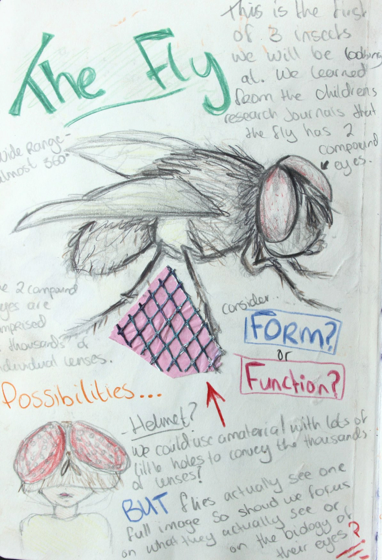 The Fly
This is the first
of 3 insects
we will be looking
at. We learned
from the childrens
research Journals that
the fly has 2
compound
eyes.
wide Range -
almost 360°
The 2 compound
eyes are
comprised
of thousands of
individual lenses.
consider...
FORM?
or
Function?
Possibilities...
- Helmet?
We could use a material with lots of
little holes to convey the thousands
of lenses?
BUT flies actually see one
full image so should we focus
on what they actually see or
on the biology of
their eyes?